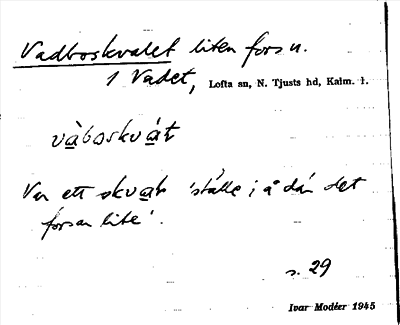 Vadboskvalet liten fors n.
1 Vadet, Lofta sn, N. Tjusts hd, Kalm. l.
vàboskvát
Var ett skvat 'ställe i å där det
forsar lite'.
s. 29
Ivar Modéer 1945